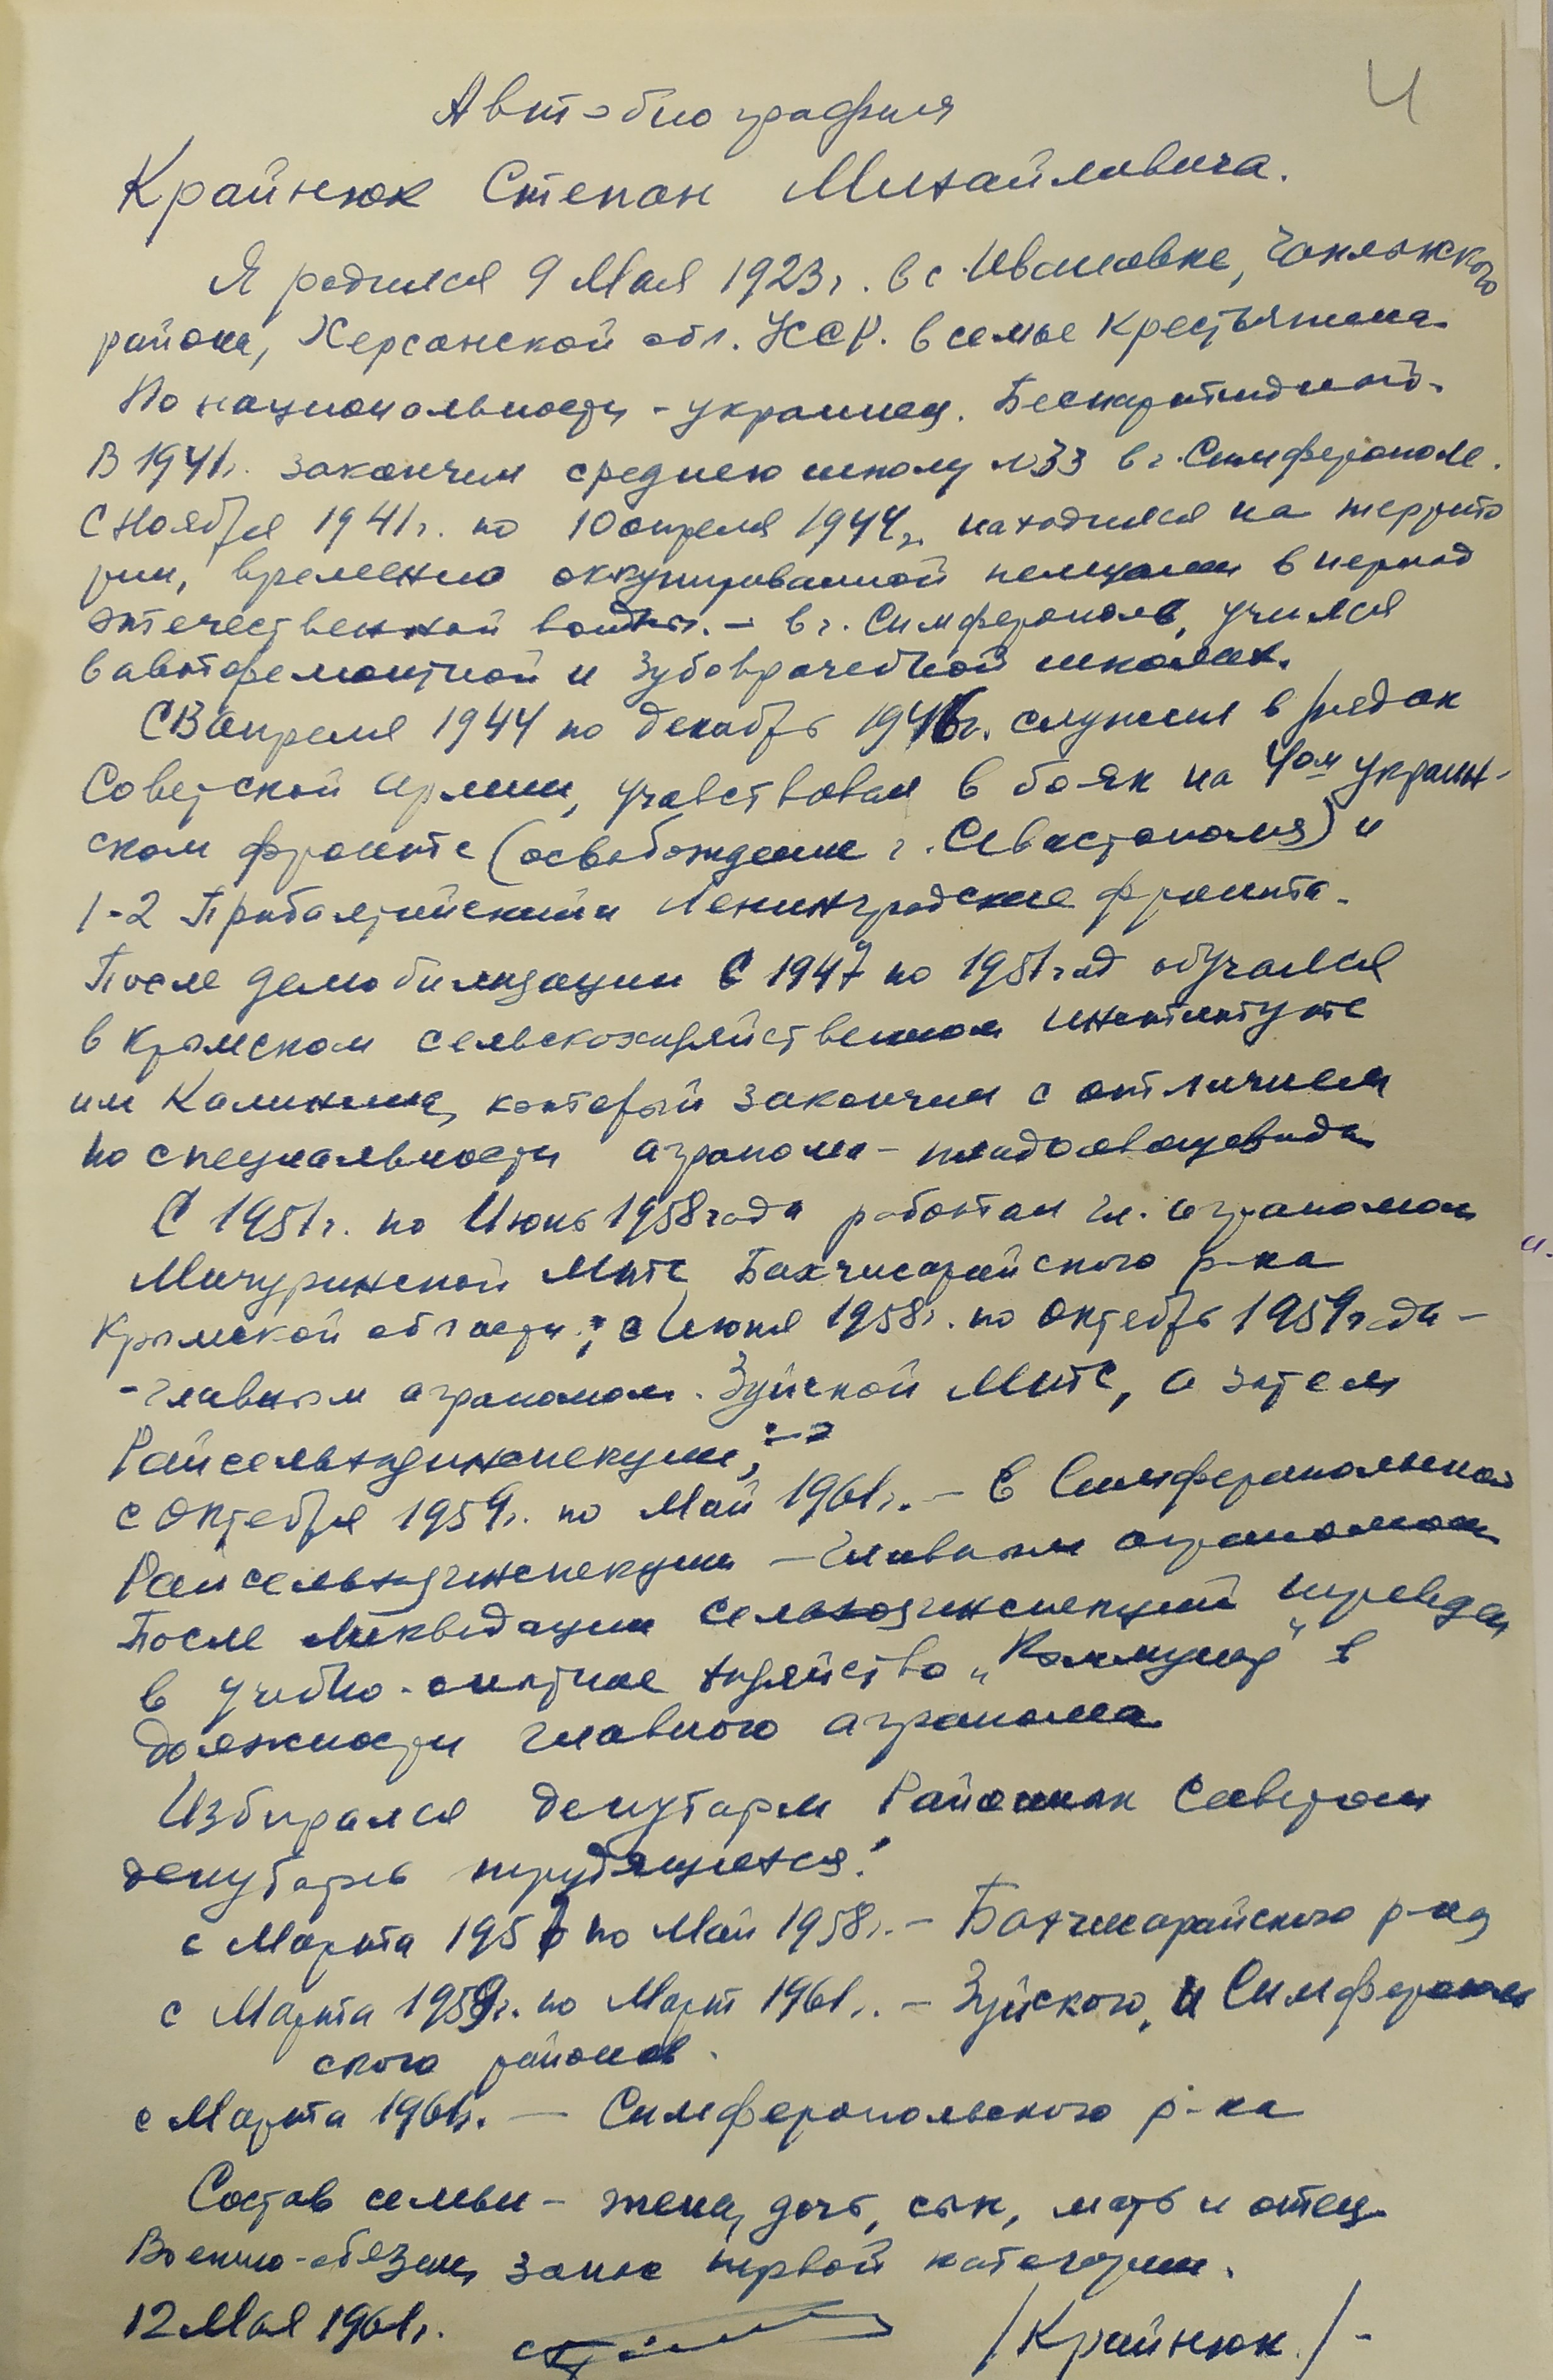 4
Автобиография
Крайнюк Степан Михайловича.
Я родился 9 Мая 1923г. в с. Ивановке, Чаплынского
района, Херсонской обл. УССР. в семье Крестьянина
По национальности - украинец. Беспартийный.
В 1941г. закончил среднею школу №33 в г. Симферополе.
С Ноября 1941г. по 10 апреля 1944г. находился на террито
рии, временно оккупированной немцами в период
отечественной войны. - в г. Симферополь, учился
в авторемонтной и зубоврачебной школах.
С 13 апреля 1944 по декабрь 1946г. служил в рядах
Советской армии, учавствовал в боях на 4ом украин-
ском фронте (освобождение г. Севастополя) и
1-2 Прибалтийский и Ленинградские фронта.
После демобилизации с 1947 по 1951 год обучался
в Крымском сельскохозяйственном институте
им Калинина, который закончил с отличием
по специальности агронома - плодоовощевода
С 1951г. по Июнь 1958 года работал гл. агрономом
Мичуринской Мтс Бахчисарайского р-ка
Крымской области; с Июня 1958г. по Октябрь 1959 года -
- главным агрономом Зуйской Мтс, а затем
Райсельхозинспекции;
с Октября 1959г. по Май 1961г. - в Симферопольской
Райсельхозинспекции - главным агрономом
После ликвидации сельхозинспекций переведен
в учебно-опытное хозяйство „Коммунар" в
должности главного агронома
Избирался депутатом Районных Советом
депутатов трудящихся:
с Марта 1957 по Май 1958г. - Бахчисарайского р-на
с Марта 1959г. по Март 1961г. - Зуйского, и Симферополь
ского районов.
с Марта 1961г. - Симферопольского р-ка
Состав семьи - жена, дочь, сын, мать и отец
Военно-обязан, запас первой категории.
12 Мая 1961г. /Крайнюк/-